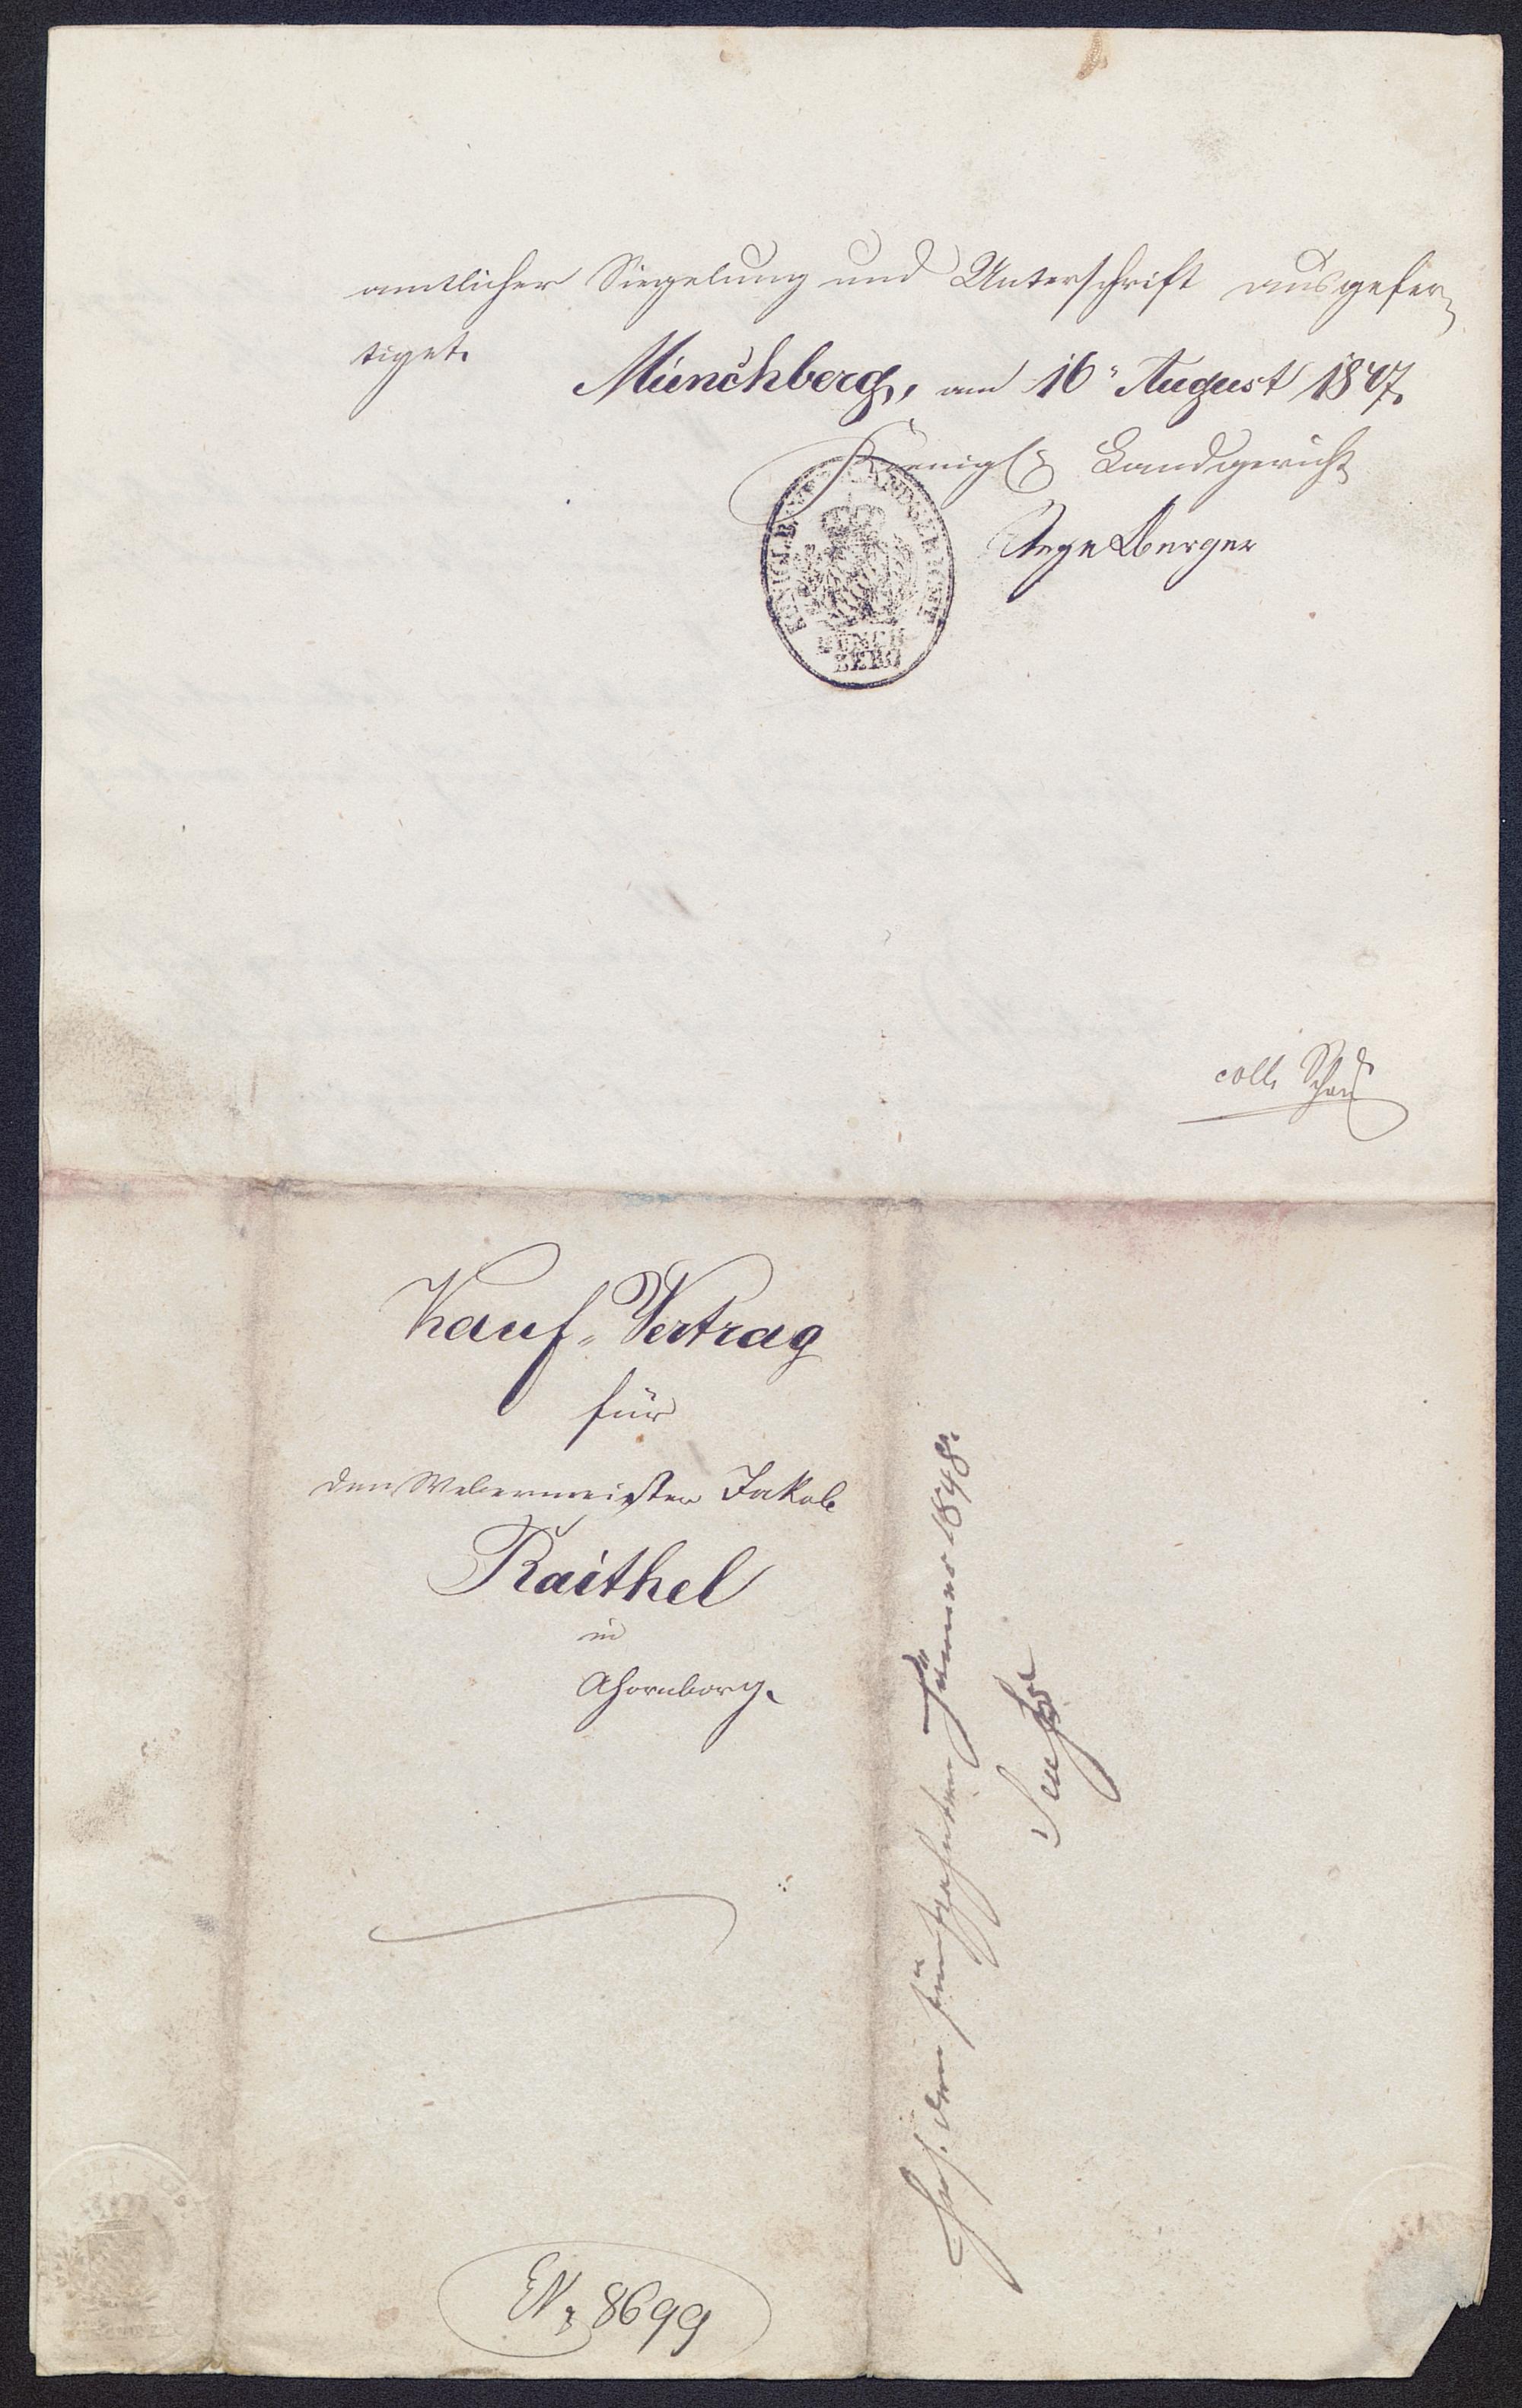 amtlicher Siegelung und Unterschrift ausgefer¬
tiget.
Münchberg, am 16. August 1847.
Koenigl. Landgericht
KÖNIGL. BAYER. LANDGERICHT
MÜNCH
BERG
coll.
Kauf-Vertrag
für
den Webermeister Jakob
Raithel
in
Ahornberg.
den fünfzehnten Jänner 1848.
EN. 8699